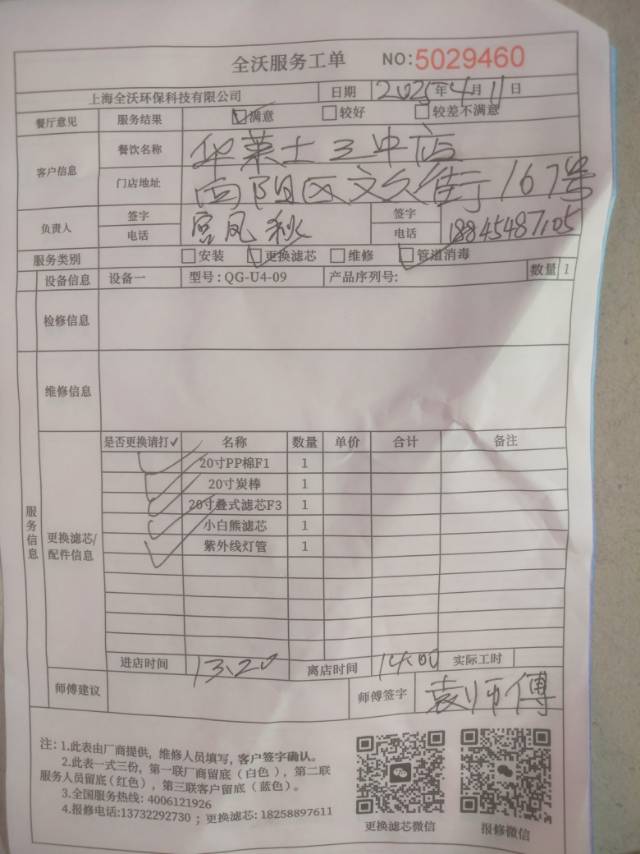 全沃服务工单 NO:5029460
上海全沃环保科技有限公司 日期 2025年4月11日
餐厅意见 服务结果 ☑满意 □较好 □较差不满意
客户信息 餐饮名称 华莱士三中店
门店地址 西阳区文久街167号
负责人 签字 宫凤秋 签字
电话 电话 18845487105
服务类别 □安装 ☑更换滤芯 □维修 ☑管道消毒
设备信息 设备一 型号: QG-U4-09 产品序列号: 数量 1
检修信息
维修信息
服务信息
更换滤芯/配件信息
是否更换请打✓ 名称 数量 单价 合计 备注
✓ 20寸PP棉F1 1
✓ 20寸炭棒 1
✓ 20寸叠式滤芯F3 1
✓ 小白熊滤芯 1
✓ 紫外线灯管 1
进店时间 13.20 离店时间 14:00 实际工时
师傅建议 师傅签字 袁师傅
注: 1.此表由厂商提供, 维修人员填写, 客户签字确认。
2.此表一式三份, 第一联厂商留底(白色), 第二联
服务人员留底(红色), 第三联客户留底(蓝色)。
3.全国服务热线: 4006121926
4.报修电话:13732292730 ; 更换滤芯: 18258897611
更换滤芯微信 报修微信